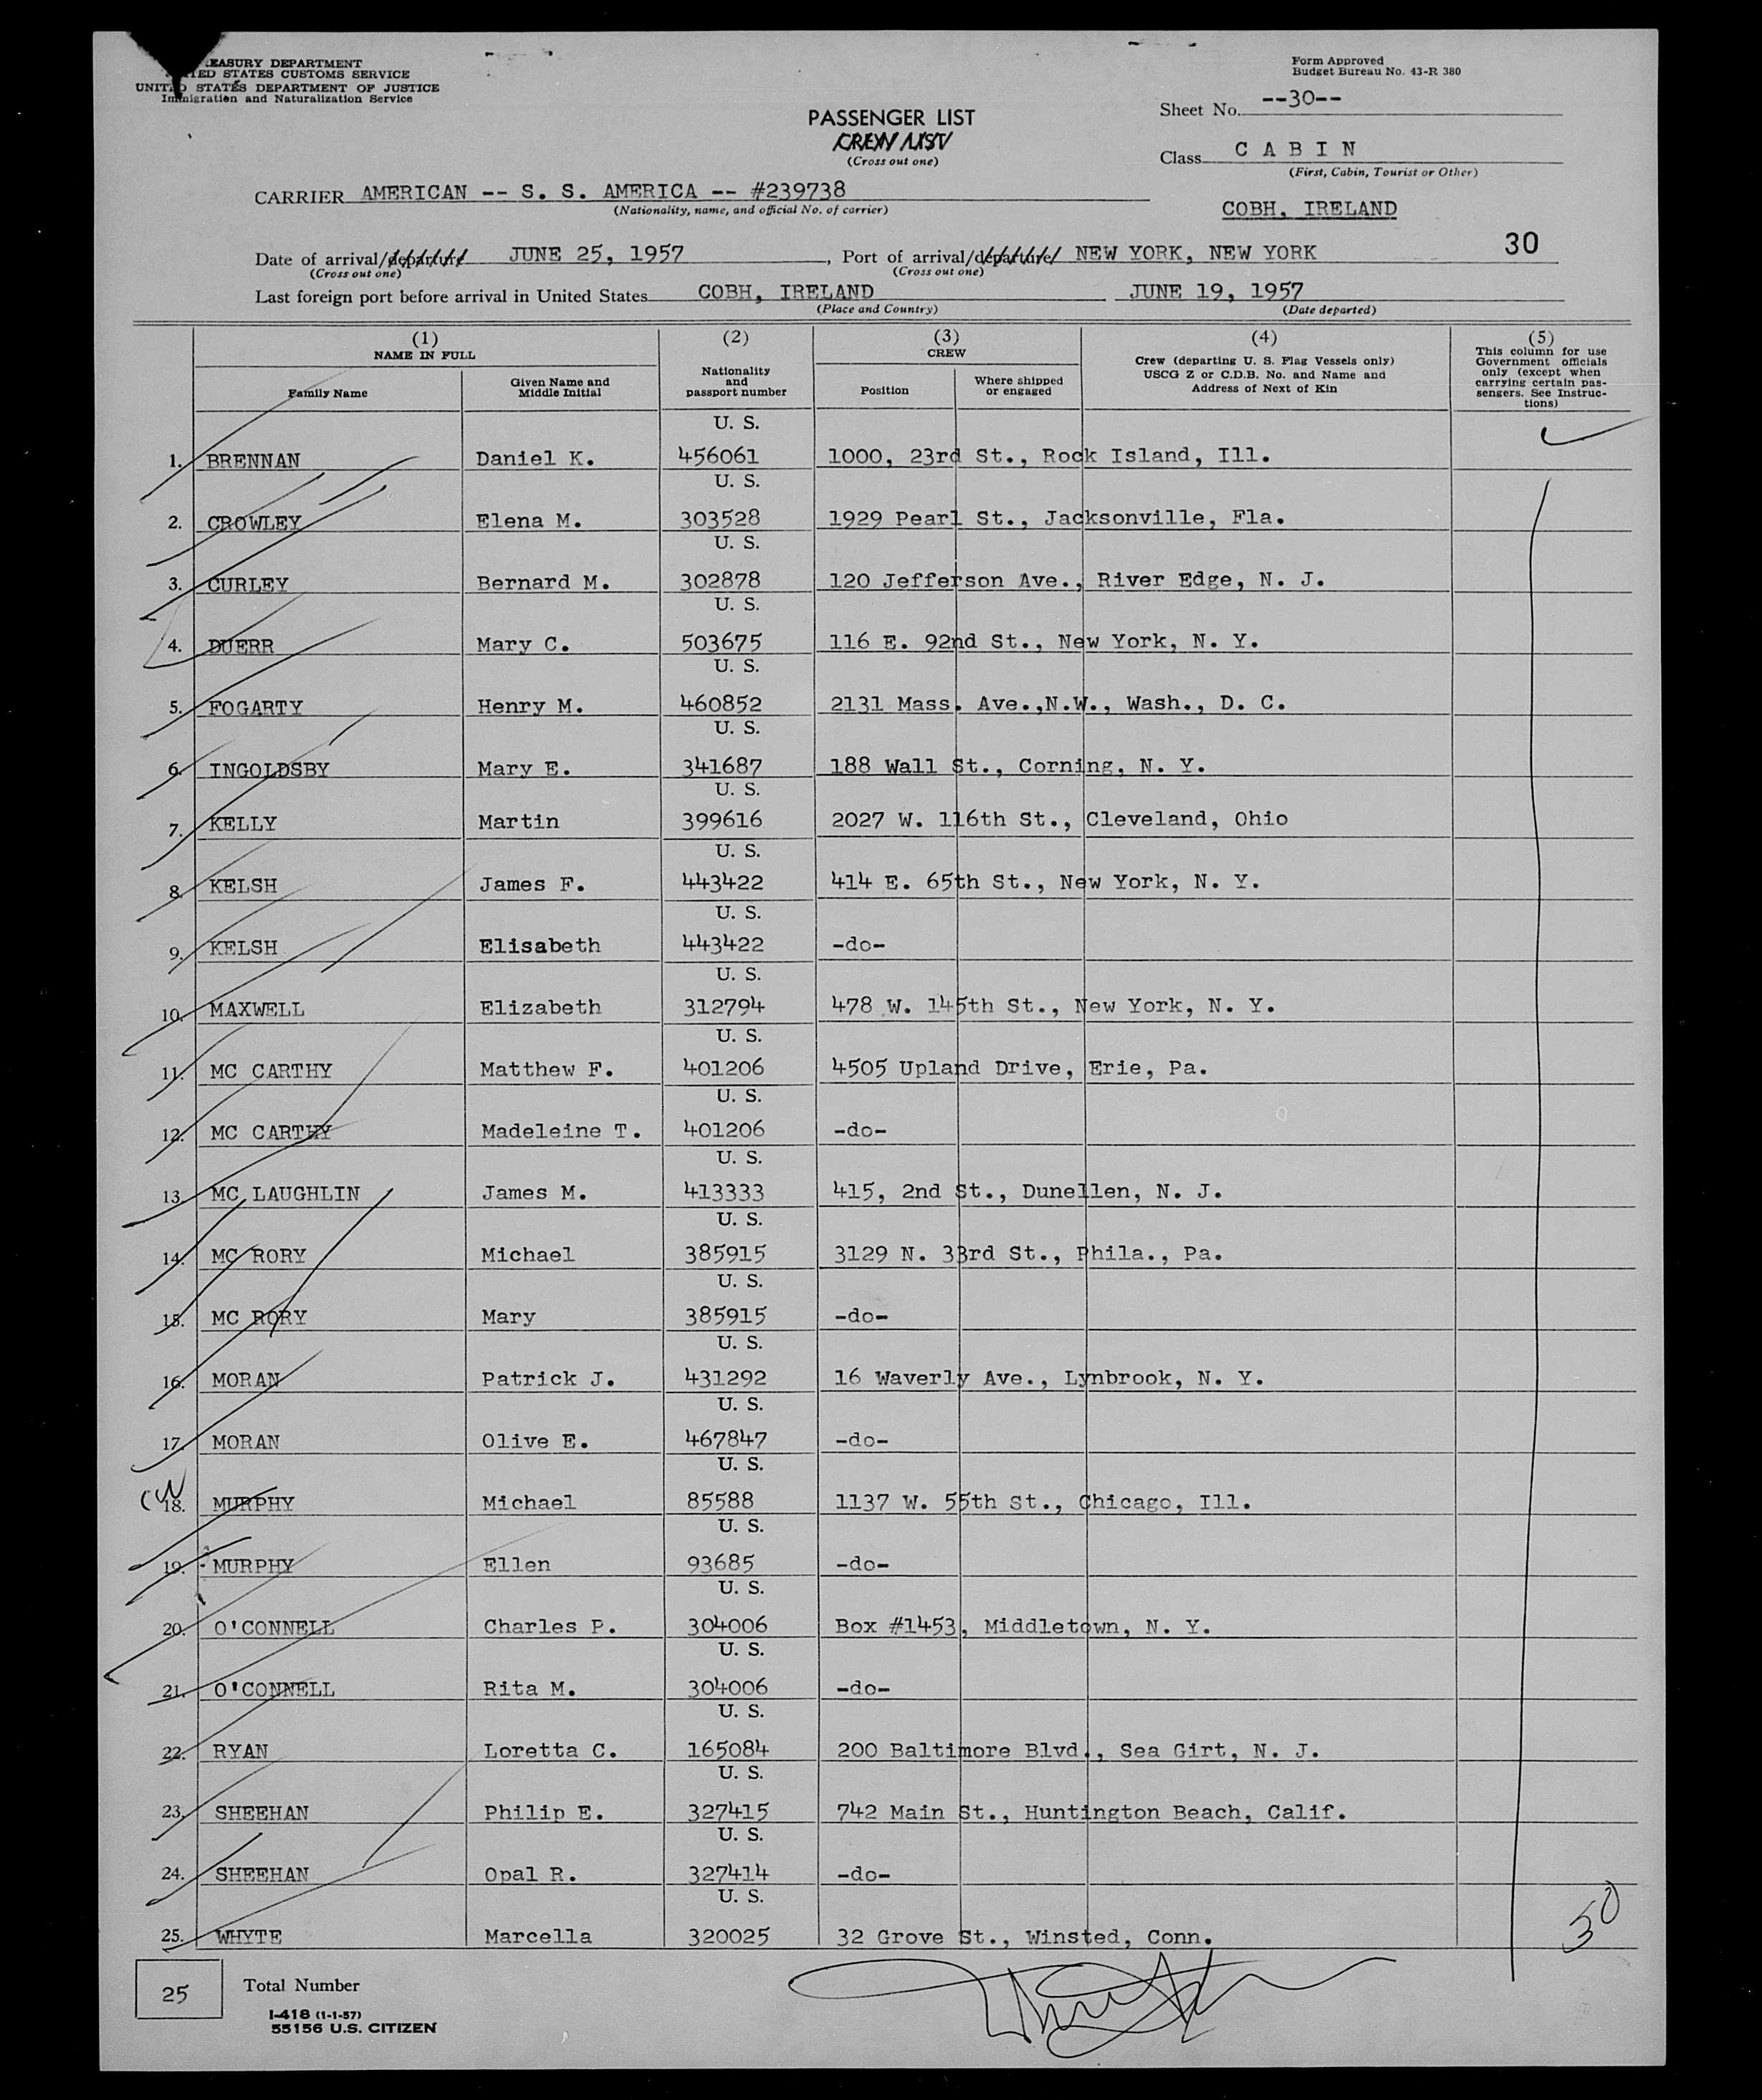 TREASURY DEPARTMENT
UNITED STATES CUSTOMS SERVICE
UNITED STATES DEPARTMENT OF JUSTICE
Immigration and Naturalization Service
Form Approved
Budget Bureau No. 43-R 380
Sheet No. --30--
PASSENGER LIST
CREW LIST
(Cross out one)
Class C A B I N
(First, Cabin, Tourist or Other)
CARRIER AMERICAN -- S. S. AMERICA -- #239738
(Nationality, name, and official No. of carrier)
COBH, IRELAND
Date of arrival/departure JUNE 25, 1957, Port of arrival/departure NEW YORK, NEW YORK 30
(Cross out one) (Cross out one)
Last foreign port before arrival in United States COBH, IRELAND JUNE 19, 1957
(Place and Country) (Date departed)
(1) NAME IN FULL
Family Name
Given Name and Middle Initial
(2) Nationality and passport number
(3) CREW
Position
Where shipped or engaged
(4) Crew (departing U. S. Flag Vessels only) USCG Z or C.D.B. No. and Name and Address of Next of Kin
(5) This column for use Government officials only (except when carrying certain passengers. See Instructions)
U. S.
1. BRENNAN Daniel K. 456061 1000, 23rd St., Rock Island, Ill.
U. S.
2. CROWLEY Elena M. 303528 1929 Pearl St., Jacksonville, Fla.
U. S.
3. CURLEY Bernard M. 302878 120 Jefferson Ave., River Edge, N. J.
U. S.
4. DUERR Mary C. 503675 116 E. 92nd St., New York, N. Y.
U. S.
5. FOGARTY Henry M. 460852 2131 Mass. Ave.,N.W., Wash., D. C.
U. S.
6. INGOLDSBY Mary E. 341687 188 Wall St., Corning, N. Y.
U. S.
7. KELLY Martin 399616 2027 W. 116th St., Cleveland, Ohio
U. S.
8. KELSH James F. 443422 414 E. 65th St., New York, N. Y.
U. S.
9. KELSH Elisabeth 443422 -do-
U. S.
10. MAXWELL Elizabeth 312794 478 W. 145th St., New York, N. Y.
U. S.
11. MC CARTHY Matthew F. 401206 4505 Upland Drive, Erie, Pa.
U. S.
12. MC CARTHY Madeleine T. 401206 -do-
U. S.
13. MC LAUGHLIN James M. 413333 415, 2nd St., Dunellen, N. J.
U. S.
14. MC RORY Michael 385915 3129 N. 33rd St., Phila., Pa.
U. S.
15. MC RORY Mary 385915 -do-
U. S.
16. MORAN Patrick J. 431292 16 Waverly Ave., Lynbrook, N. Y.
U. S.
17. MORAN Olive E. 467847 -do-
U. S.
18. MURPHY Michael 85588 1137 W. 55th St., Chicago, Ill.
U. S.
19. MURPHY Ellen 93685 -do-
U. S.
20. O'CONNELL Charles P. 304006 Box #1453, Middletown, N. Y.
U. S.
21. O'CONNELL Rita M. 304006 -do-
U. S.
22. RYAN Loretta C. 165084 200 Baltimore Blvd., Sea Girt, N. J.
U. S.
23. SHEEHAN Philip E. 327415 742 Main St., Huntington Beach, Calif.
U. S.
24. SHEEHAN Opal R. 327414 -do-
U. S.
25. WHYTE Marcella 320025 32 Grove St., Winsted, Conn.
25 Total Number
I-418 (1-1-57)
55156 U.S. CITIZEN